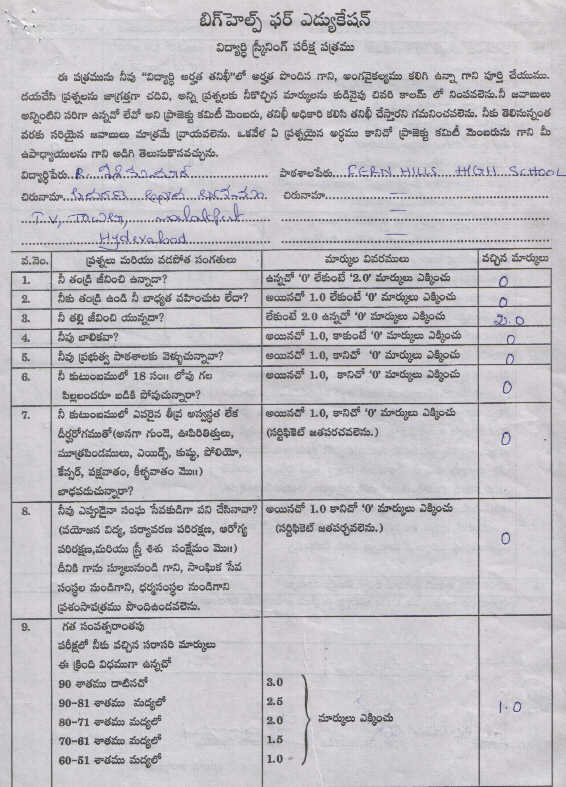 బిగ్‌హెల్ప్ ఫర్ ఎడ్యుకేషన్
విద్యార్థి స్క్రీనింగ్ పరీక్ష పత్రము
ఈ పత్రమును నీవు "విద్యార్థి అర్హత తనిఖీ"లో అర్హత పొందిన గాని, అంగవైకల్యము కలిగి ఉన్నా గాని పూర్తి చేయుము.
దయచేసి ప్రశ్నలను జాగ్రత్తగా చదివి, అన్ని ప్రశ్నలకు నీకొచ్చిన మార్కులను కుడివైపు చివరి కాలమ్ లో నింపవలెను.నీ జవాబులు
అన్నింటిని సరిగా ఉన్నవో లేవో అని ప్రాజెక్టు కమిటీ మెంబరు, తనిఖీ అధికారి కలిసి తనిఖీ చేస్తారని గమనించవలెను. నీకు తెలిసున్నంత
వరకు సరియైన జవాబులు మాత్రమే వ్రాయవలెను. ఒకవేళ ఏ ప్రశ్నయైన అర్థము కానిచో ప్రాజెక్టు కమిటీ మెంబరును గాని మీ
ఉపాధ్యాయులను గాని అడిగి తెలుసుకొనవచ్చును.
విద్యార్థిపేరు B. పాఠశాలపేరు FERN HILLS HIGH SCHOOL
చిరునామా చిరునామా —
T.V, Tower, —
Hyderabad
వ.నెం. ప్రశ్నలు మరియు వడపోత సంగతులు మార్కుల వివరములు వచ్చిన మార్కులు
1. నీ తండ్రి జీవించి ఉన్నాడా? ఉన్నచో '0' లేకుంటే '2.0' మార్కులు ఎక్కించు 0
2. నీకు తండ్రి ఉండి నీ బాధ్యత వహించుట లేదా? అయినచో 1.0 లేకుంటే '0' మార్కులు ఎక్కించు 0
3. నీ తల్లి జీవించి యున్నదా? లేకుంటే 2.0 ఉన్నచో '0' మార్కులు ఎక్కించు 2.0
4. నీవు బాలికవా? అయినచో 1.0, కాకుంటే '0' మార్కులు ఎక్కించు 0
5. నీవు ప్రభుత్వ పాఠశాలకు వెళ్ళుచున్నావా? అయినచో 1.0, కానిచో '0' మార్కులు ఎక్కించు 0
6. నీ కుటుంబములో 18 సం॥ లోపు గల అయినచో 1.0, కానిచో '0' మార్కులు ఎక్కించు 0
పిల్లలందరూ బడికి పోవుచున్నారా?
7. నీ కుటుంబములో ఎవరైన తీవ్ర అస్వస్థత లేక అయినచో 1.0, కానిచో '0' మార్కులు ఎక్కించు 0
దీర్ఘరోగముతో(అనగా గుండె, ఊపిరితిత్తులు, (సర్టిఫికెట్ జతపరచవలెను.)
మూత్రపిండములు, ఎయిడ్స్, కుష్టు, పోలియో,
కేన్సర్, పక్షవాతం, కీళ్ళవాతం మొ॥)
బాధపడుచున్నారా?
8. నీవు ఎప్పుడైనా సంఘ సేవకుడిగా పని చేసినావా? అయినచో 1.0 కానిచో '0' మార్కులు ఎక్కించు 0
(వయోజన విద్య, పర్యావరణ పరిరక్షణ, ఆరోగ్య (సర్టిఫికెట్ జతపర్చవలెను.)
పరిరక్షణ,మరియు స్త్రీ శిశు సంక్షేమం మొ॥)
దీనికి గాను స్కూలునుండి గాని, సాంఘిక సేవ
సంస్థల నుండిగాని, ధర్మసంస్థల నుండిగాని
ప్రశంసాపత్రము పొందిఉండవలెను.
9. గత సంవత్సరాంతపు
పరీక్షలో నీకు వచ్చిన సరాసరి మార్కులు
ఈ క్రింది విధముగా ఉన్నచో
90 శాతము దాటినచో 3.0
90-81 శాతము మధ్యలో 2.5
80-71 శాతము మధ్యలో 2.0 మార్కులు ఎక్కించు 1.0
70-61 శాతము మధ్యలో 1.5
60-51 శాతము మధ్యలో 1.0